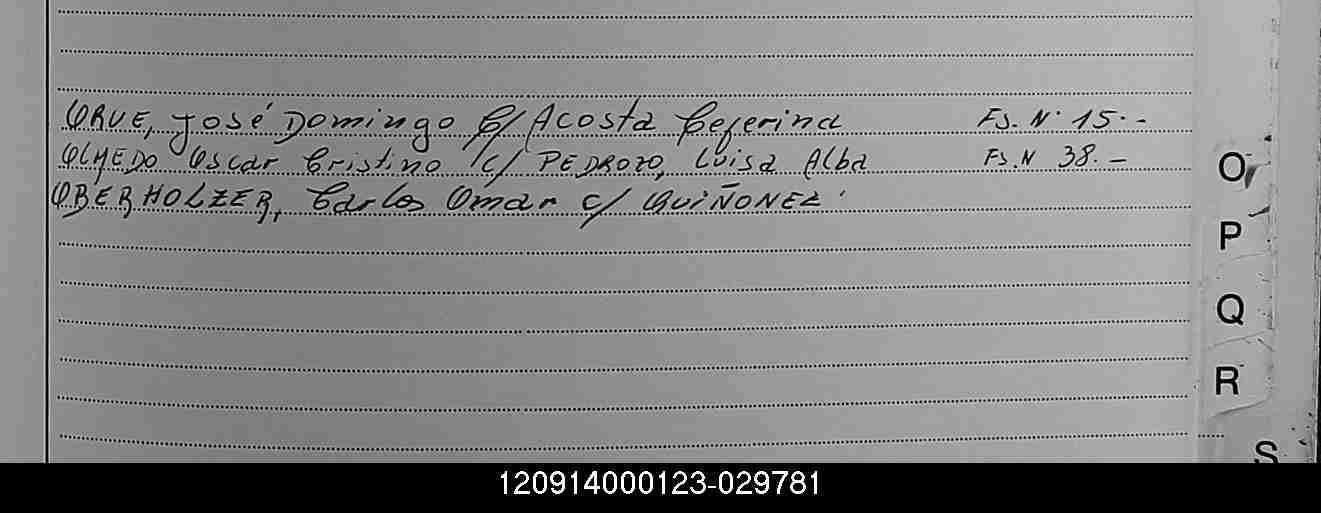 ORUE, José Domingo C/ Acosta Ceferina Fs. Nº 15.-
OLMEDO Oscar Cristino C/ PEDROZO, Luisa Alba Fs. N 38.-
OBERHOLZER, Carlos Omar C/ QUIÑONEZ.
O
P
Q
R
S
120914000123-029781